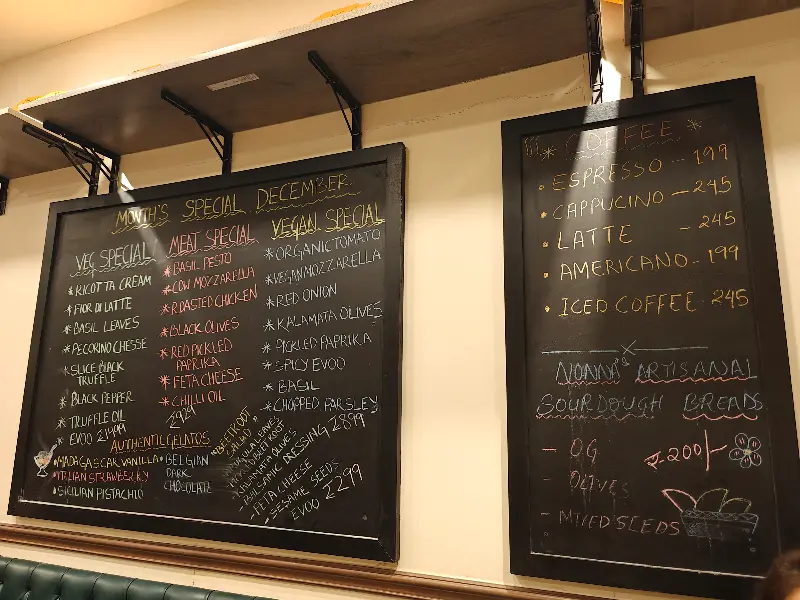 MONTH'S SPECIAL DECEMBER
VEG SPECIAL
* RICOTTA CREAM
* FIOR DI LATTE
* BASIL LEAVES
* PECORINO CHESSE
* SLICE BLACK
TRUFFLE
* BLACK PEPPER
* TRUFFLE OIL
* EVOO
MEAT SPECIAL
* BASIL PESTO
* COW MOZZARELLA
* ROASTED CHICKEN
* BLACK OLIVES
* RED PICKLED
PAPRIKA
* FETA CHEESE
* CHILLI OIL
₹929
VEGAN SPECIAL
* ORGANIC TOMATO
* VEGAN MOZZARELLA
* RED ONION
* KALAMATA OLIVES
* PICKLED PAPRIKA
* SPICY EVOO
* BASIL
* CHOPPED PARSLEY
₹899
AUTHENTIC GELATOS
• MADAGASCAR VANILLA
• ITALIAN STRAWBERRY
• SICILIAN PISTACHIO
• BELGIAN
DARK
CHOCOLATE
BEETROOT
SALAD
- KALAMATA OLIVES
- BALSAMIC DRESSING
- FETA CHEESE
- SESAME SEEDS
EVOO ₹299
* COFFEE *
• ESPRESSO -- 199
• CAPPUCINO - 245
• LATTE - 245
• AMERICANO - 199
• ICED COFFEE - 245
NONNA'S ARTISANAL
SOURDOUGH BREADS
- OG
- OLIVES
- MIXED SEEDS
₹200/-